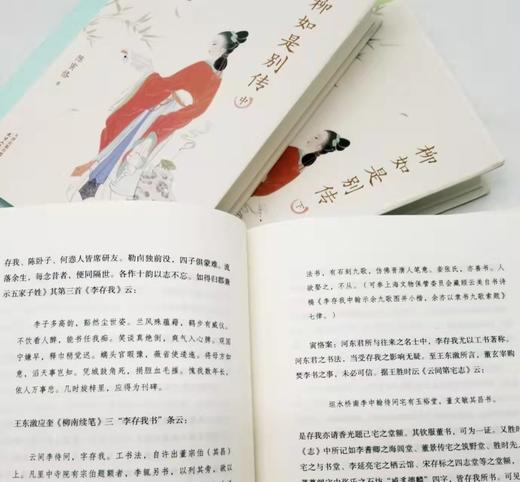 柳如是别传
中
陈寅恪
柳如是别传
下
存我、陈卧子、何悫人皆席研友。勒卣独前没,四子俱蒙难。流
落余生,每念昔者,便同隔世。各作十韵以志不忘。如得归郡兼
示五家子姓》其第三首《李存我》云:
李子多高韵,豁然尘世姿。兰风殊蕴藉,鹤步有威仪。
不饮看人醉,能书任我痴。笑谈真绝倒,爽气入心脾。观国
宁嫌早,释巾稍觉迟。螭头官暇豫,薇省使逶迤。将母方如
意,滔天事岂知。凭城鼓角死,捐脰血毛摧。愧我数年长,
依人万事悲。几时旋梓里,应得为刊碑。
王东溆应奎《柳南续笔》三“李存我书”条云:
云间李待问,字存我。工书法,自许出董宗伯(其昌)上。
凡里中寺院有宗伯题额者,李辄另书,以列其旁,欲以
法书,有石刻九歌,仿佛晋唐人笔意。妾张氏,亦善书。人
欲娶之,不从。(可参上海文物保管委员会藏顾云美自书诗
稿《李存我中翰示余九歌图并小楷,余亦以隶书九歌索题》
七律。)
寅恪案:河东君所与往来之名士中,李存我尤以工书著称。
河东君之书法,当受存我之影响无疑。至王东溆所言,董玄宰购
焚李书之事,未必可信。据王胜时沄《云间第宅志》云:
坦水桥南李中翰待问宅有玉裕堂,董文敏其昌书。
是存我亦请香光题己宅之堂额,其钦服董书,可为一证。又胜时
《志》中所记如李耆卿之海闾堂、董景传宅之筑野堂、胜时先
之宅与书堂、李延亮宅之栖云馆、宋存标之四志堂等,